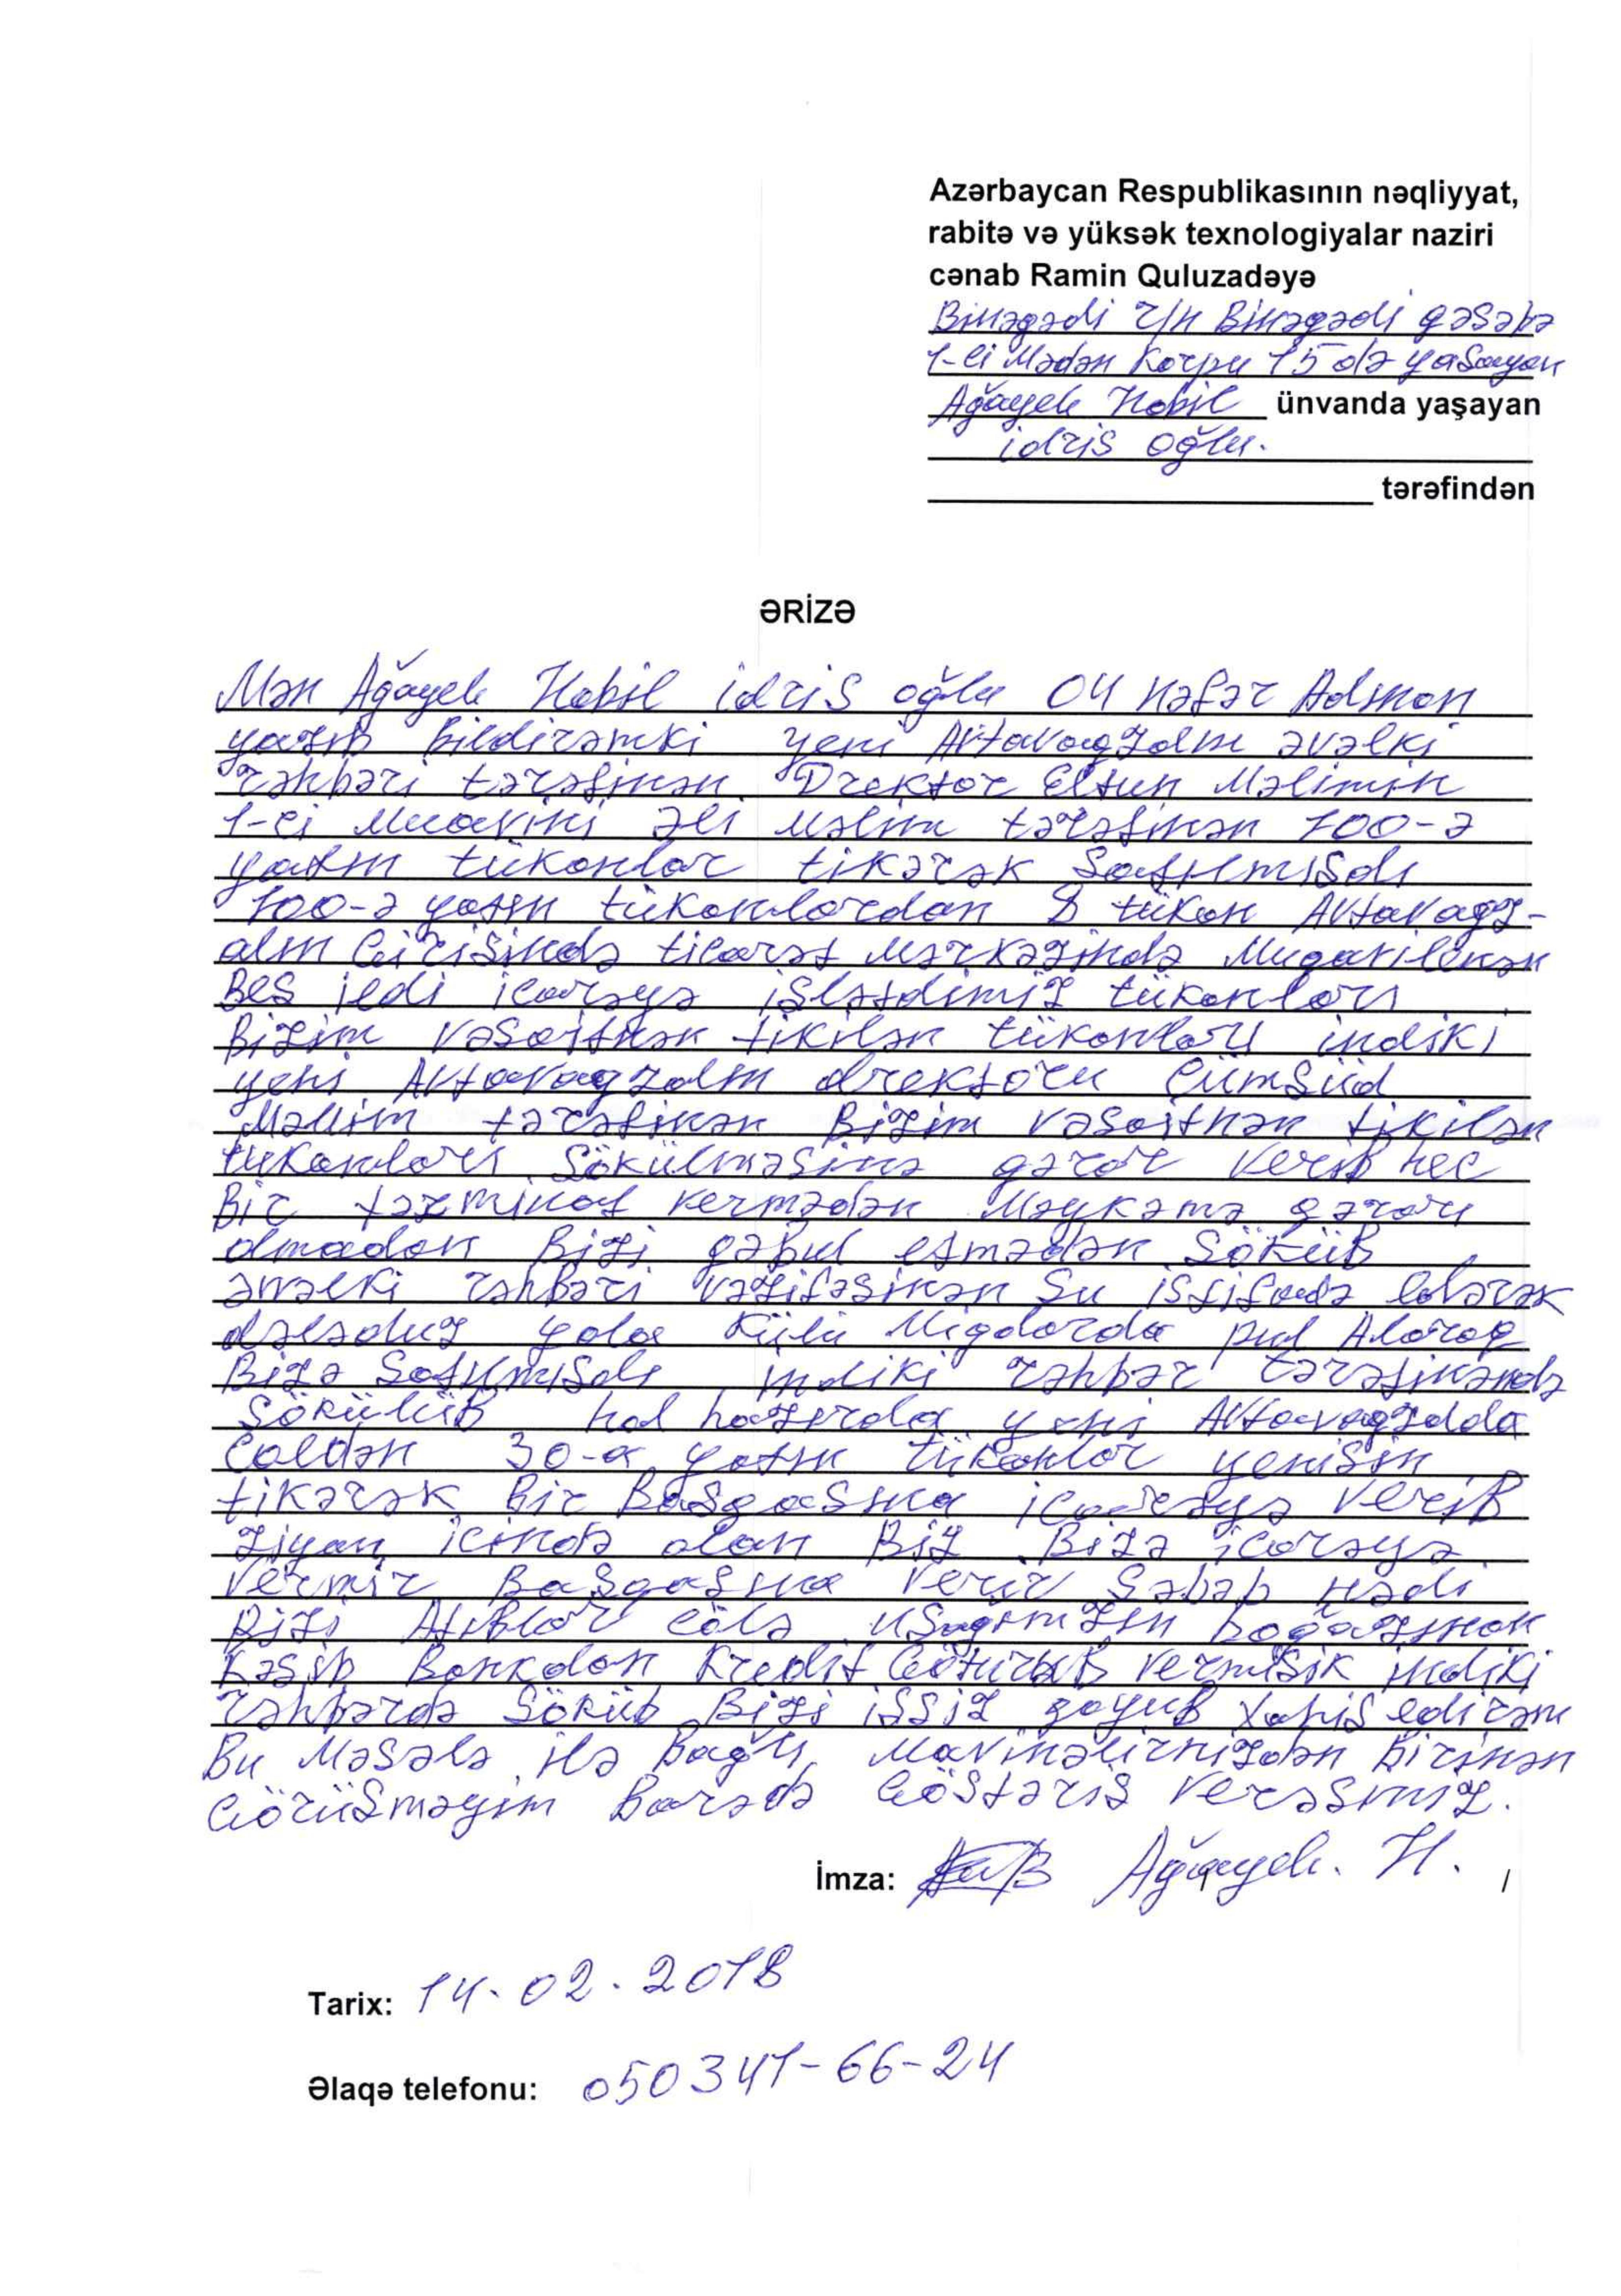 Azərbaycan Respublikasının nəqliyyat,
rabitə və yüksək texnologiyalar naziri
cənab Ramin Quluzadəyə
Binəqədi r/n Binəqədi qəsəbə
1-ci Mədən Korpu 15 də yaşayan
Ağayek Habil ünvanda yaşayan
idris oğlu.
tərəfindən
ƏRİZƏ
Mən Ağayek Habil idris oğlu 04 nəfər Adınnan
yazıb bildirəmki yeni Avtavagzalın əvəlki
rəhbəri tərəfinən Drektor Eltun Məlimin
1-ci Muavini Əli Məlim tərəfinən 100-ə
yaxın tükanlar tikərək Satılmışdı
100-ə yaxın tükanlardan 8 tükan Avtavagz-
alın Girişində ticarət Mərkəzində Mugavilənən
Beş jedi icarəyə işlətdimiz tükanları
Bizim vəsaitnən tikilən tükanları indiki
yeni Avtovagzalın drektoru Cümşüd
Məllim tərəfinən Bizim vəsaitnən tikilən
tükanları Sökülməsinə qərar verib hec
Bir təzminat vermədən Məykəmə qərarı
olmadan Bizi qəbul etmədən Söküb
əvəlki rəhbəri vəzifəsinən Su istifadə edərək
dələduz yola Külü Migdarda pul Alaraq
Bizə Satılmışdı indiki rəhbər tərəfinəndə
Sökülüb hal hazırda yeni Avtovagzalda
Cöldən 30-a yaxın tükanlar yenisin
tikərək Bir Başqasına icarəyə verib
ziyan icində olan Biz Bizə icarəyə
vermir Başqasına verir Səbəb nədi
Bizi Atıblar cölə uşağımızın boğazınnan
Kəsib Bankdan Kredit Götürüb vermişik indiki
rəhbərdə Söküb Bizi işsiz qoyub Xahiş edirəm
Bu Məsələ ilə Bağlı Mavinəlirnizdən Birinən
Görüşməyim Barədə Göstəriş verəsiniz.
İmza: Ağayek. H. /
Tarix: 14.02.2018
Əlaqə telefonu: 050 341-66-24